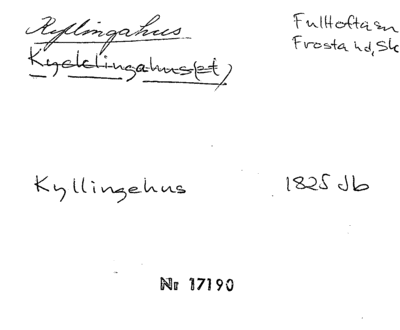 Kyllingahus
Fulltofta sn
Frosta hd, Sk
Kycklingahus(et)
Kyllingehus 1825 Jb
Nr 17190